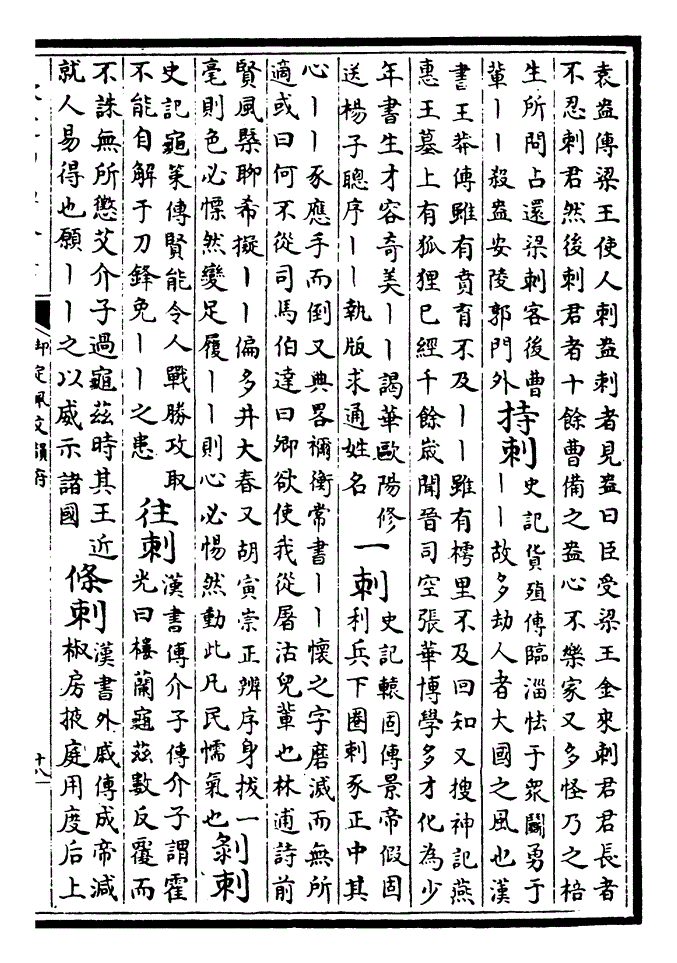 袁盎傳梁王使人刺盎刺者見盎曰臣受梁王金來刺君君長者
不忍刺君然後刺君者十餘曹備之盎心不樂家又多怪乃之棓
生所問占還梁刺客後曹
輩丨丨殺盎安陵郭門外
持刺
史記貨殖傳臨淄怯于衆鬬勇于
丨丨故多劫人者大國之風也漢
書王莽傳雖有賁育不及丨丨雖有樗里不及回知又搜神記燕
惠王墓上有狐狸已經千餘嵗聞晉司空張華博學多才化為少
年書生才容奇美丨丨謁華歐陽修
送楊子聰序丨丨執版求通姓名
一刺
史記轅固傳景帝假固
利兵下圈刺豕正中其
心丨丨豕應手而倒又典畧禰衡常書丨丨懷之字磨滅而無所
適或曰何不從司馬伯達曰卿欲使我從屠沽兒輩也林逋詩前
賢風槩聊希擬丨丨偏多井大春又胡寅崇正辨序身拔一
毫則色必慄然變足履丨丨則心必惕然動此凡民懦氣也
剝刺
史記龜策傳賢能令人戰勝攻取
不能自解于刀鋒免丨丨之患
往刺
漢書傅介子傳介子謂霍
光曰樓蘭龜兹數反覆而
不誅無所懲艾介子過龜兹時其王近
就人易得也願丨丨之以威示諸國
條刺
漢書外戚傳成帝減
椒房掖庭用度后上
御定佩文韻府
十八